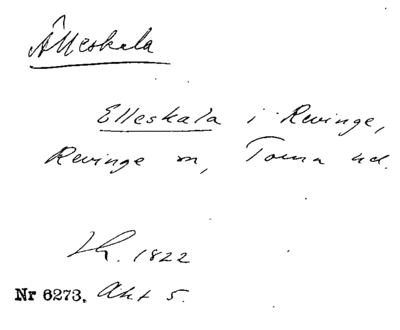 Älleskala
Elleskala i Revinge,
Revinge sn, Torna hd.
1822
Nr 6273. Akt 5.